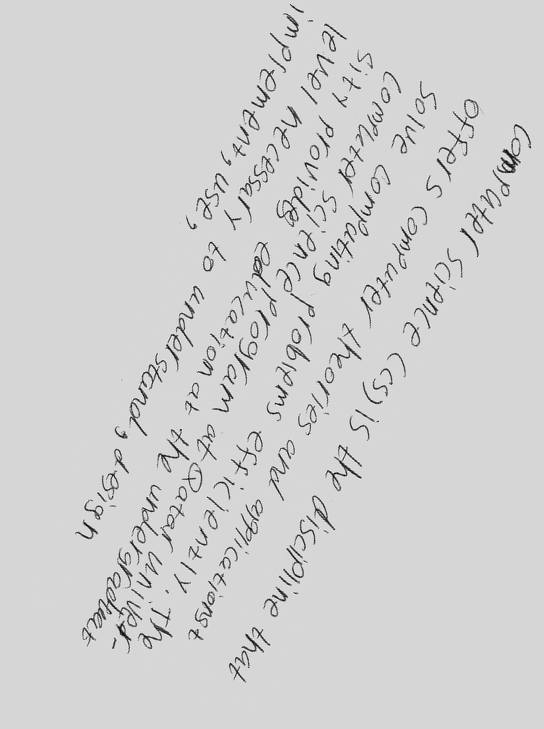 Computer science (CS) is the discipline that
offers computer theories and applications t
solve computing problems efficiently. The
computer science program at Qatar Univer-
sity provides education at the undergraduat
level necessary to understand, design
implement, use,